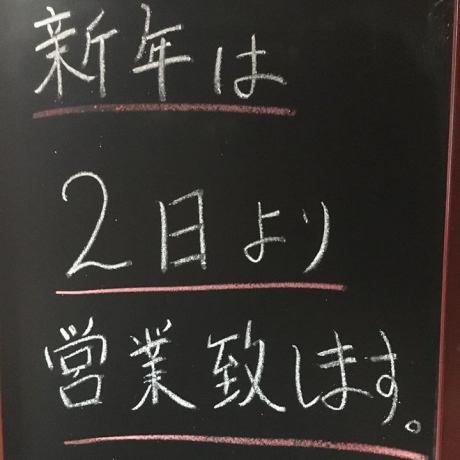 新年は
2日より
営業致します。